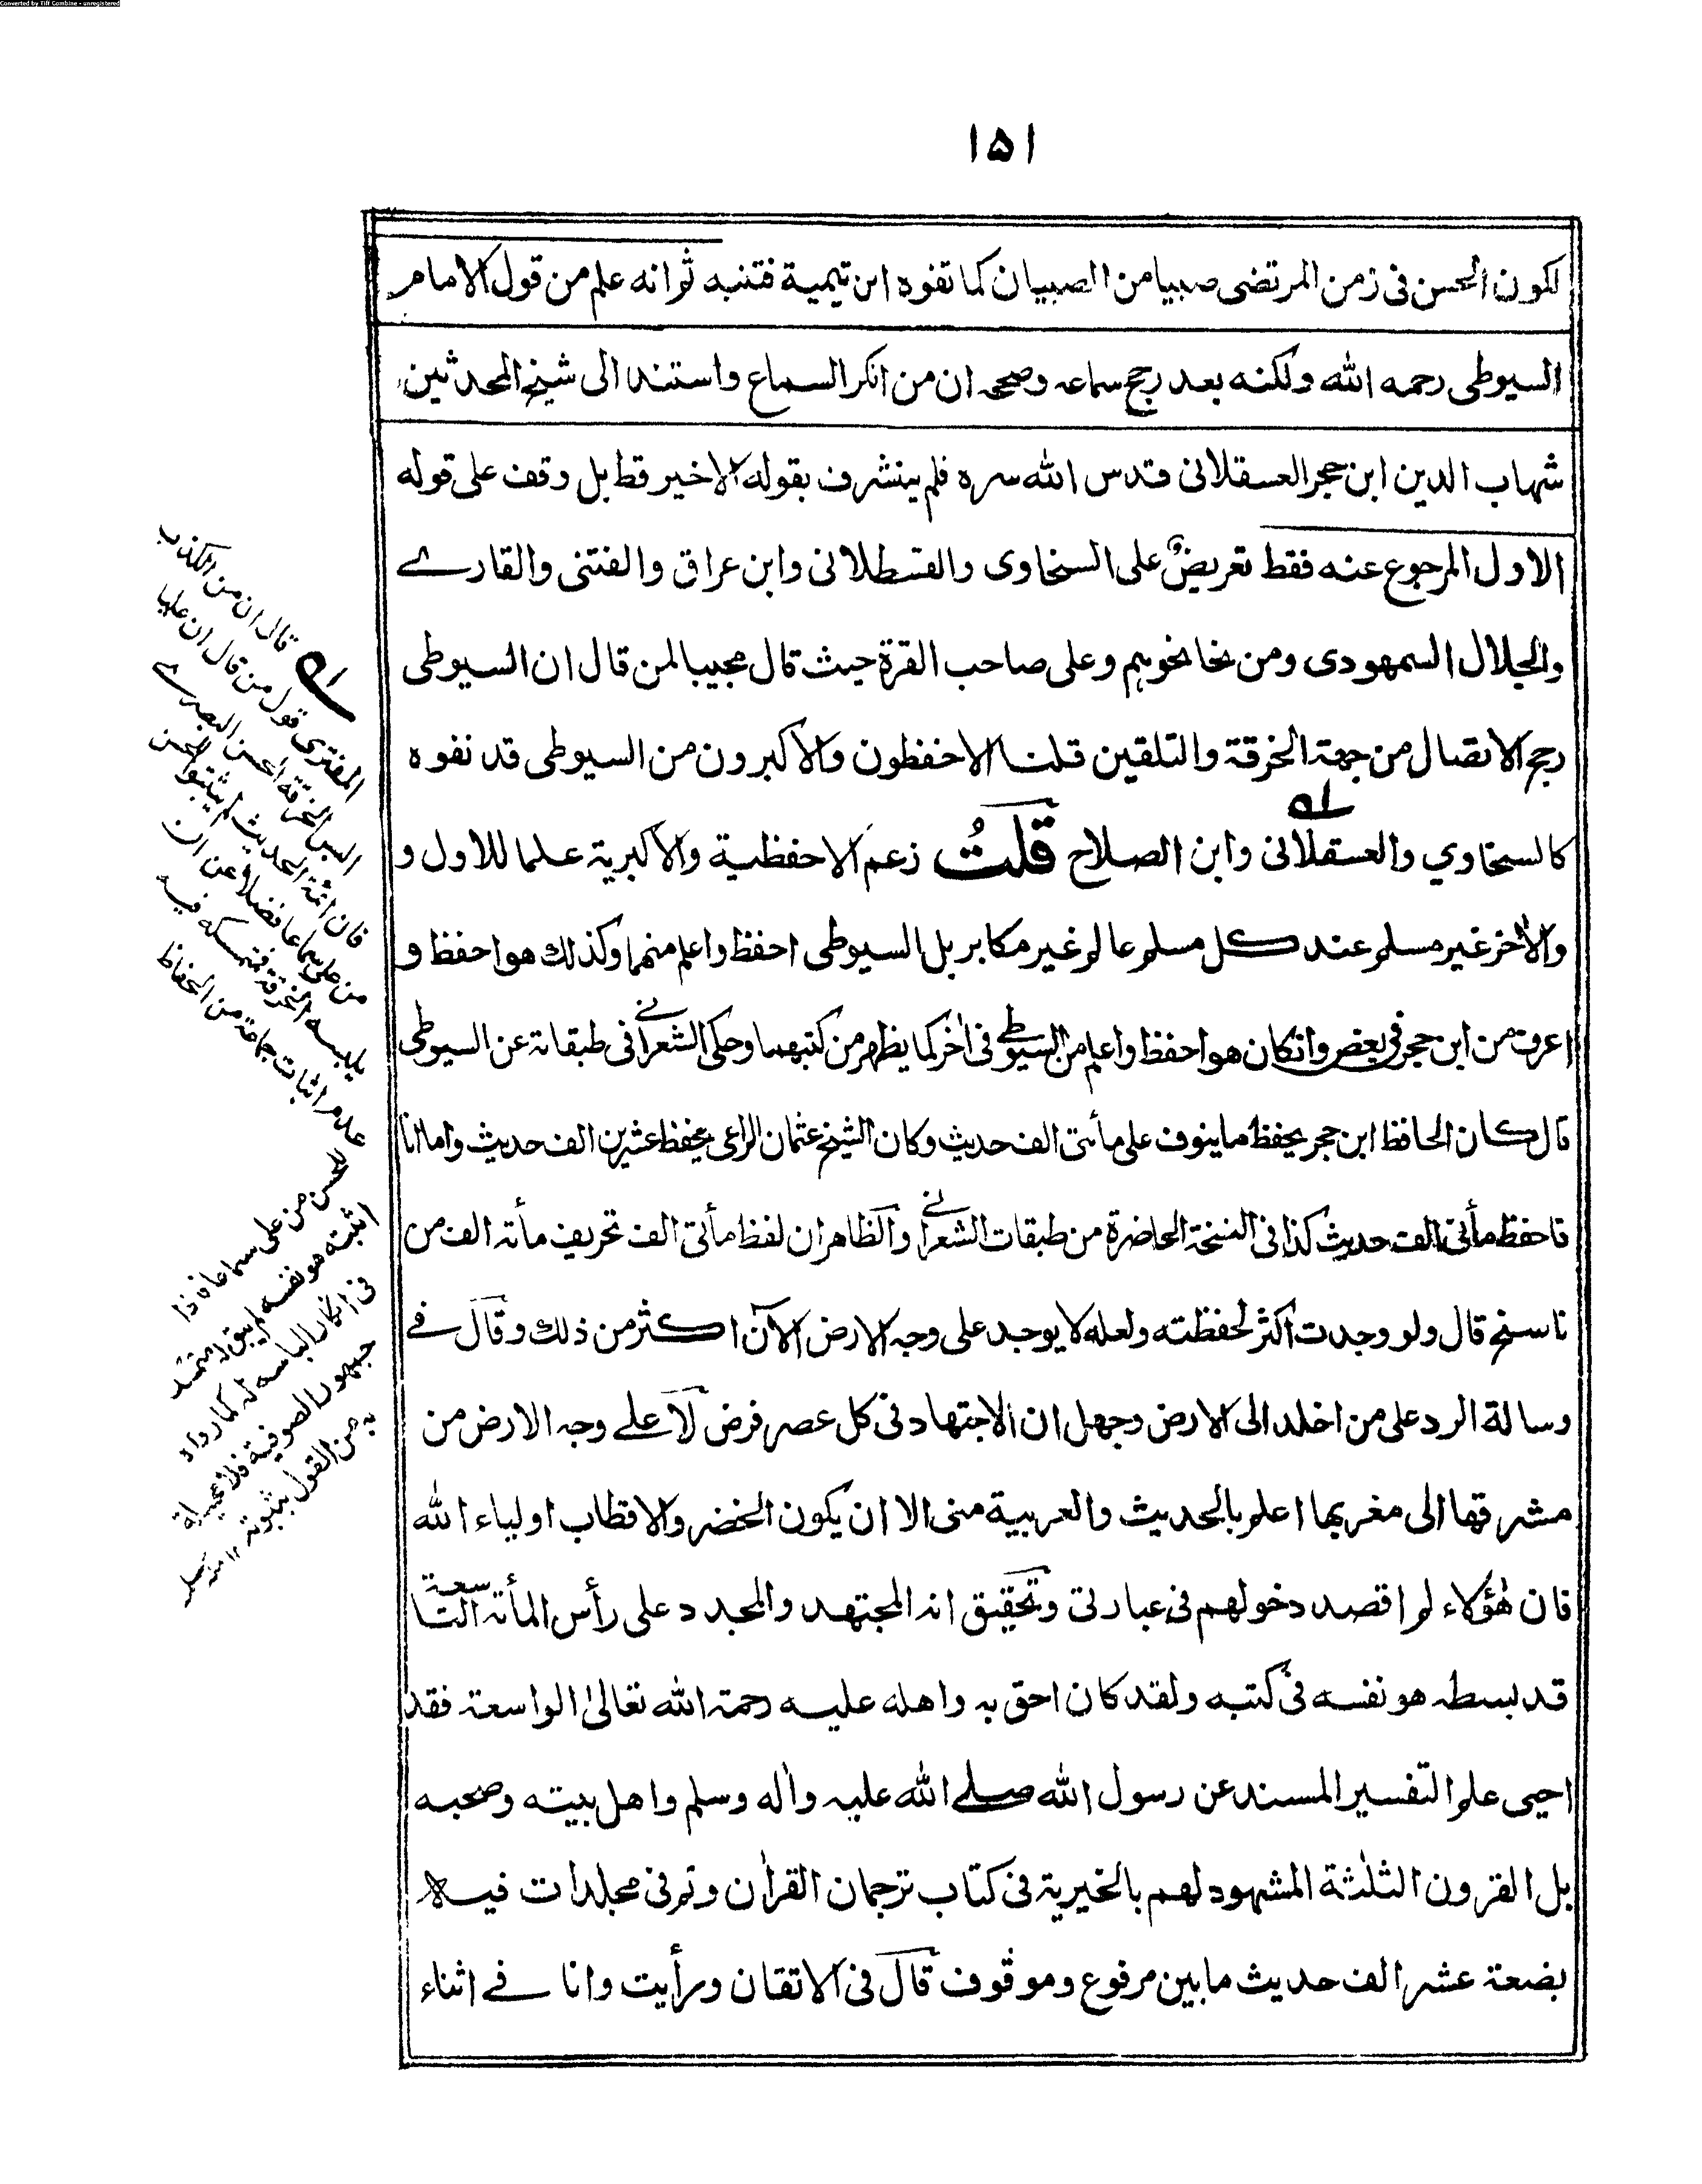 Converted by Tiff Combine - unregistered
١٥١
لكون الحسن فى زمن المرتضى صبيا من الصبيان كما تفوه ابن تيمية فتنبه ثم انه علم من قول الامام
السيوطى رحمه الله ولكنه بعد رجح سماعه وصححه ان من انكر السماع واستند الى شيخ المحدثين
شهاب الدين ابن حجر العسقلانى قدس الله سره فلم يتشرف بقوله الاخير قط بل وقف على قوله
الاول المرجوع عنه فقط تعريض على السخاوى والقسطلانى وابن عراق والفتنى والقارے
والجلال السمهودى ومن نحا نحوهم وعلى صاحب القرة حيث قال مجيبا لمن قال ان السيوطى
رجح الاتصال من جهة الخرقة والتلقين قلنا الاحفظون والاكبرون من السيوطى قد تفوه
كالسخاوي والعسقلانى وابن الصلاح قلتُ زعم الاحفظية والاكبرية علما للاول و
والأخر غير مسلم عند كل مسلم عالم غير مكابر بل السيوطى احفظ واعلم منهما وكذلك هو احفظ و
اعرف من ابن حجر فى بعض وانكان هو احفظ واعلم من السيوطى فى أخر كما يظهر من كتبهما وحكى الشعرانے فى طبقاته عن السيوطى
قال كان الحافظ ابن حجر يحفظ ما ينوف على مأتى الف حديث وكان الشيخ عثمان الراعى يحفظ عشرين الف حديث واما انا
فاحفظ مأتى الف حديث كذا فى النسخة الحاضرة من طبقات الشعرانے والظاهر ان لفظ مأتى الف تحريف مأته الف من
ناسخ قال ولو وجدت اكثر لحفظته ولعله لا يوجد على وجه الارض الآن اكثر من ذلك وقال فے
رسالة الرد على من اخلد الى الارض وجهل ان الاجتهاد فى كل عصر فرض لا علے وجه الارض من
مشرقها الى مغربها اعلم بالحديث والعربية منى الا ان يكون الخضر والاقطاب اولياء الله
فان هٰؤلاء لم اقصد دخولهم فى عبارتى وتحقيق انه المجتهد والمجدد على رأس المأته التاسعة
قد بسطه هو نفسه فى كتبه ولقد كان احق به واهله عليه رحمة الله تعالىٰ الواسعة فقد
احيى علم التفسير المسند عن رسول الله صلے الله عليه وأله وسلم واهل بيته وصحبه
بل القرون الثلٰثة المشهود لهم بالخيرية فى كتاب ترجمان القرأن وتم فى مجلدات فيه
بضعة عشر الف حديث ما بين مرفوع وموقوف قال فى الاتقان ورأيت وانا فے اثناء
قال ان من الكذب
المفترى قول من قال ان عليا
البس الخرقة الحسن البصرے
فان ائمة الحديث لم يثبتوا للحسن
من على سماعا فضلا عن ان
يلبسه الخرقة فتمسكه فيه
عدم اثبات جماعة من الحفاظ
للحسن من على سماعا فاذا
اثبته هو نفسه لم يبق له متمسك
فى انكار الباسه له كما رواه
جمهور الصوفية فلا محيد له
به من القول بثبوته ١٢ منه سلمه